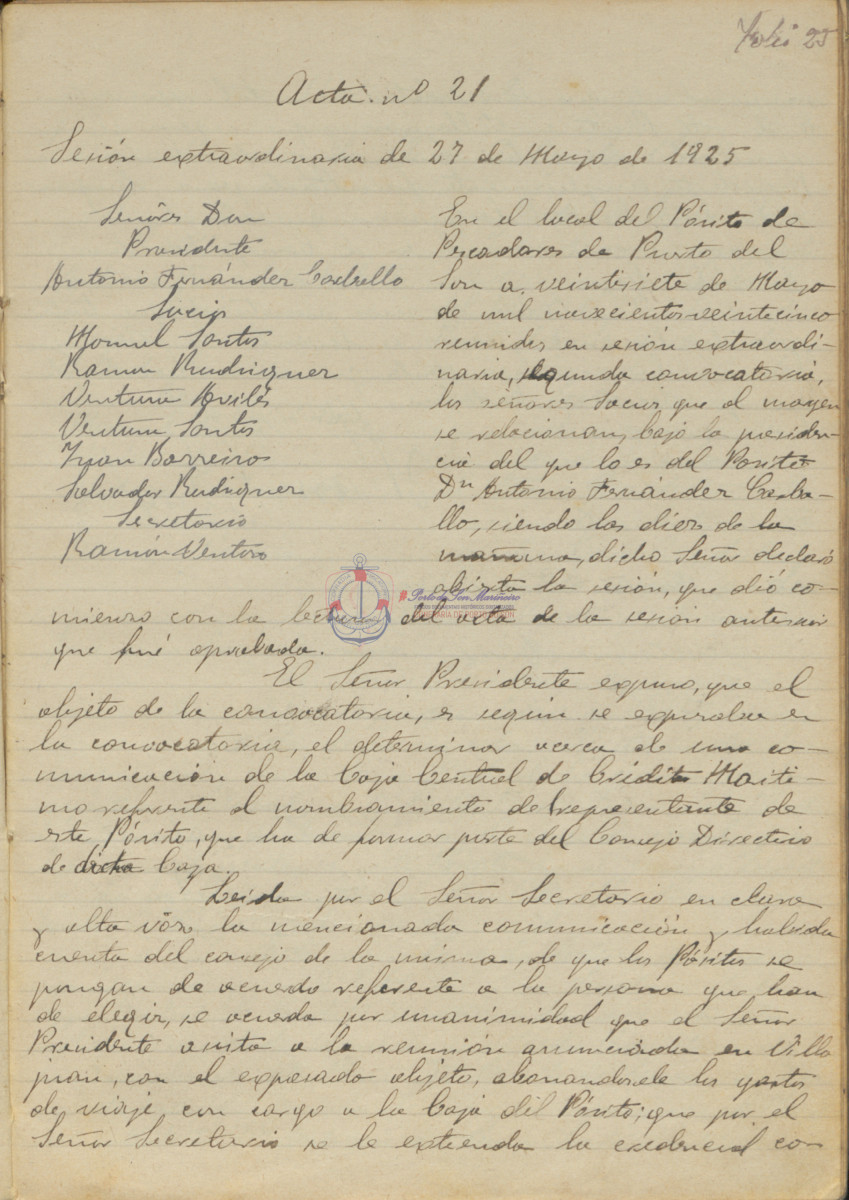 Folio 25
Acta nº 21
Sesión extraordinaria de 27 de Mayo de 1925
Señores Don
Presidente
Antonio Fernández Carballo
Socios
Manuel Santos
Ramon Rudriguez
Ventura Avilés
Ventura Santos
Juan Barreiros
Salvador Rudriguez
Secretario
Ramón Ventoso
En el local del Pósito de
Pescadores de Puerto del
Son a veintisiete de Mayo
de mil novecientos veinticinco
reunidos en sesión extraordi-
naria, segunda convocatoria,
los señores Socios que al margen
se relacionan, bajo la presiden-
cia del que lo es del Pósito
Dn Antonio Fernández Carba-
llo, siendo las diez de la
mañana, dicho Señor declaró
abierta la sesión, que dió co-
mienzo con la lectura del acta de la sesión anterior
que fué aprobada.
El Señor Presidente expuso, que el
objeto de la convocatoria, es según se expresaba en
la convocatoria, el determinar acerca de una co-
municación de la Caja Central de Crédito Maríti-
mo referente al nombramiento del representante de
este Pósito, que ha de formar parte del Consejo Directivo
de dicha Caja.
Leida por el Señor Secretario en clara
y alta vöz la mencionada comunicación y habida
cuenta del consejo de la misma, de que los Pósitos se
pongan de acuerdo referente a la persona que han
de elegir, se acuerda por unanimidad que el Señor
Presidente asista a la reunión anunciada en Villa
juan, con el expresado objeto, abonandosele los gastos
de viaje con cargo a la Caja del Pósito; que por el
Señor Secretario se le extienda la credencial co-
#Porto do Son Mariñeiro